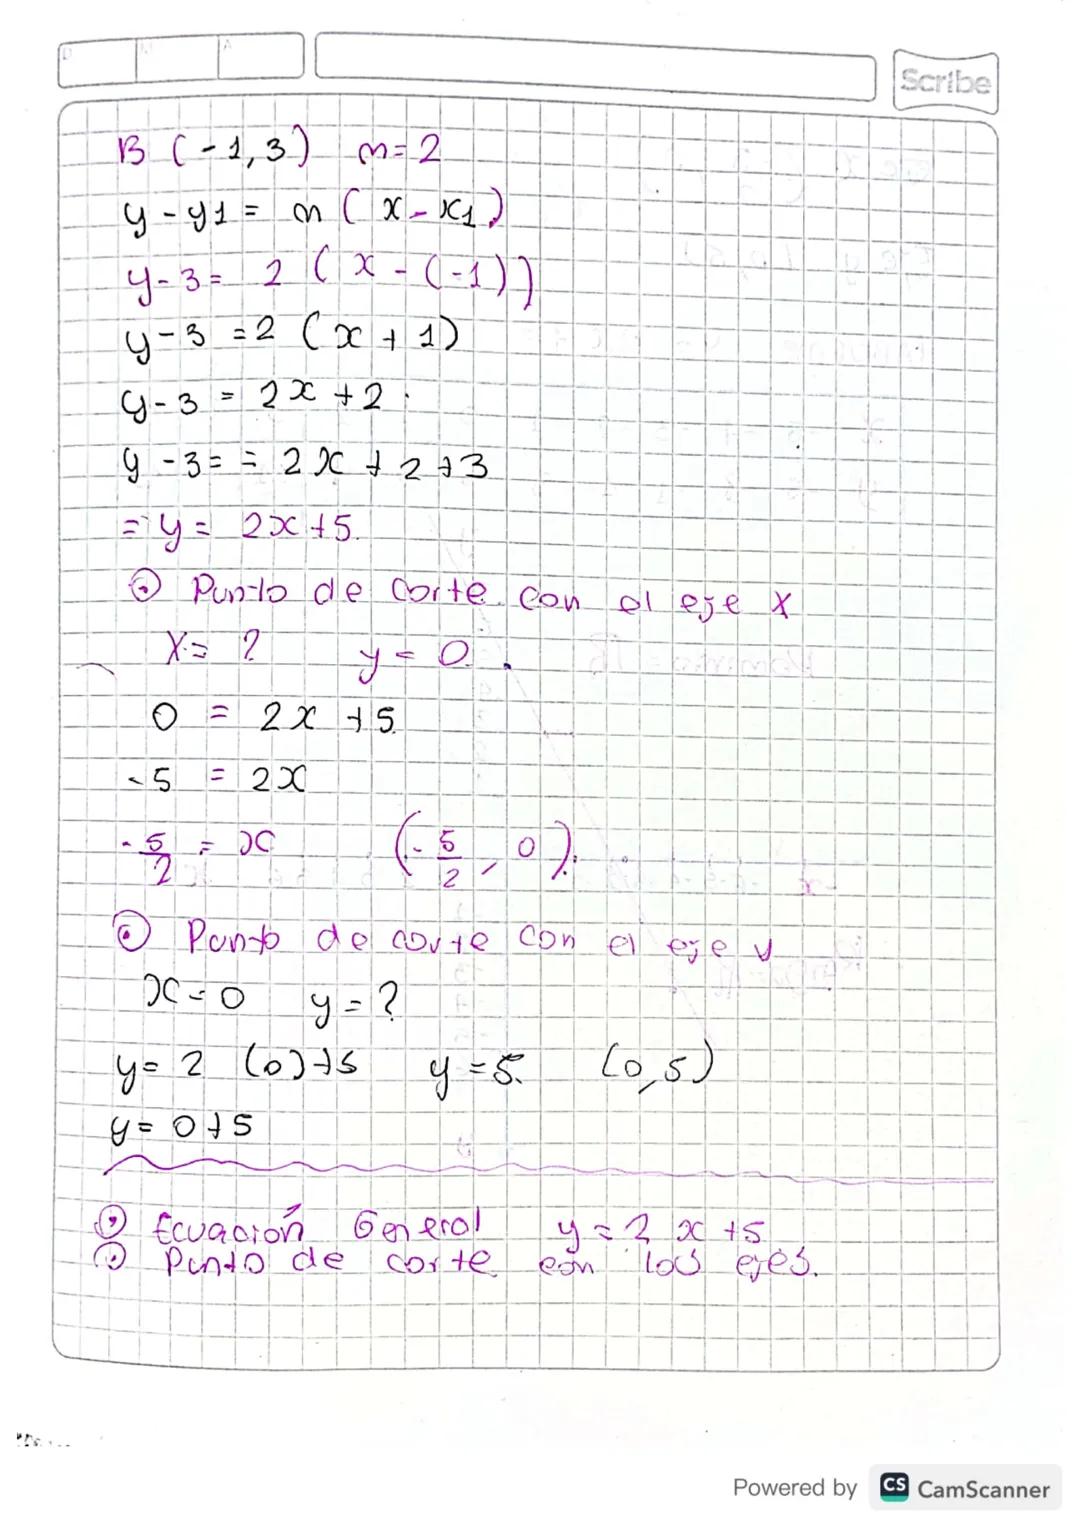 Scribe
B (-1,3) m=2
y - y1 = m ( x - x1 )
y - 3 = 2 ( x - (-1))
y - 3 = 2 ( x + 1)
y - 3 = 2x + 2
y - 3 = = 2x + 2 + 3
= y = 2x + 5.
Punto de corte con el eje x
x = ? y = 0.
0 = 2x + 5.
-5 = 2x
-5/2 = x (-5/2, 0).
Punto de corte con el eje y
x = 0 y = ?
y = 2 (0) + 5 y = 5. (0,5)
y = 0 + 5
Ecuación General y = 2x + 5
Punto de corte con los ejes.
Powered by CS CamScanner